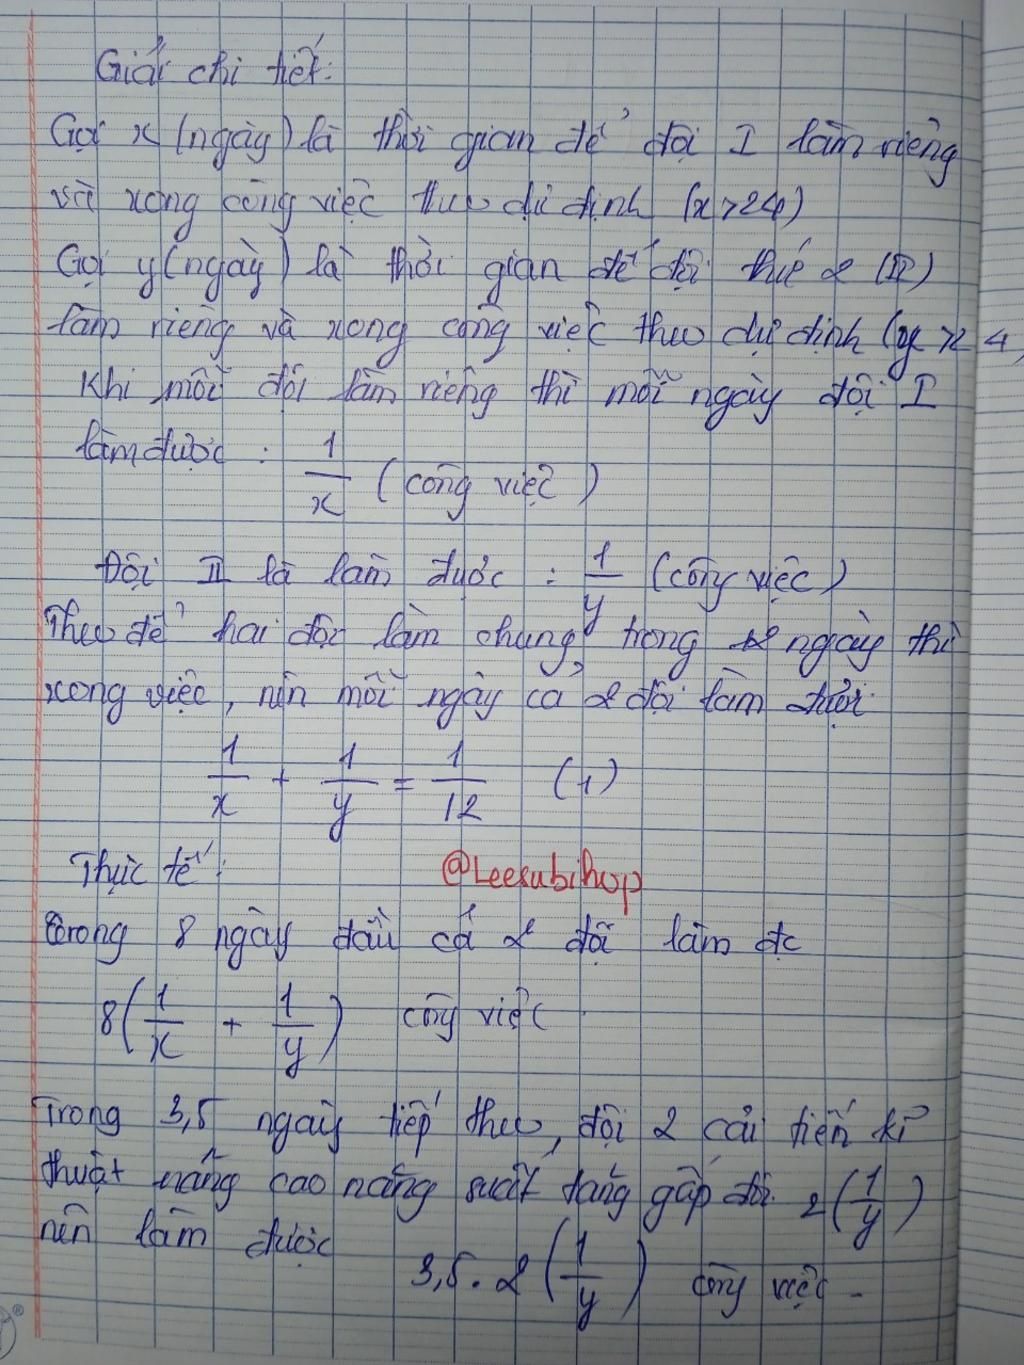 Giải chi tiết:
Gọi x (ngày) là thời gian để đội I làm riêng
và xong công việc theo dự định (x > 24)
Gọi y (ngày) là thời gian để đội thứ 2 (II)
làm riêng và xong công việc theo dự định (y > 24
Khi mỗi đội làm riêng thì mỗi ngày đội I
làm được : 1/x (công việc)
Đội II là làm được : 1/y (công việc)
Theo đề hai đội làm chung trong ngày thì
xong việc, nên mỗi ngày cả 2 đội làm được
1/x + 1/y = 1/12 (1)
Thực tế:
@Leesubihop
trong 8 ngày đầu cả 2 đội làm đc
8(1/x + 1/y) công việc.
Trong 3,5 ngày tiếp theo, đội 2 cải tiến kĩ
thuật nâng cao năng suất tăng gấp đôi 2(1/y)
nên làm được
3,5 . 2 (1/y) công việc.